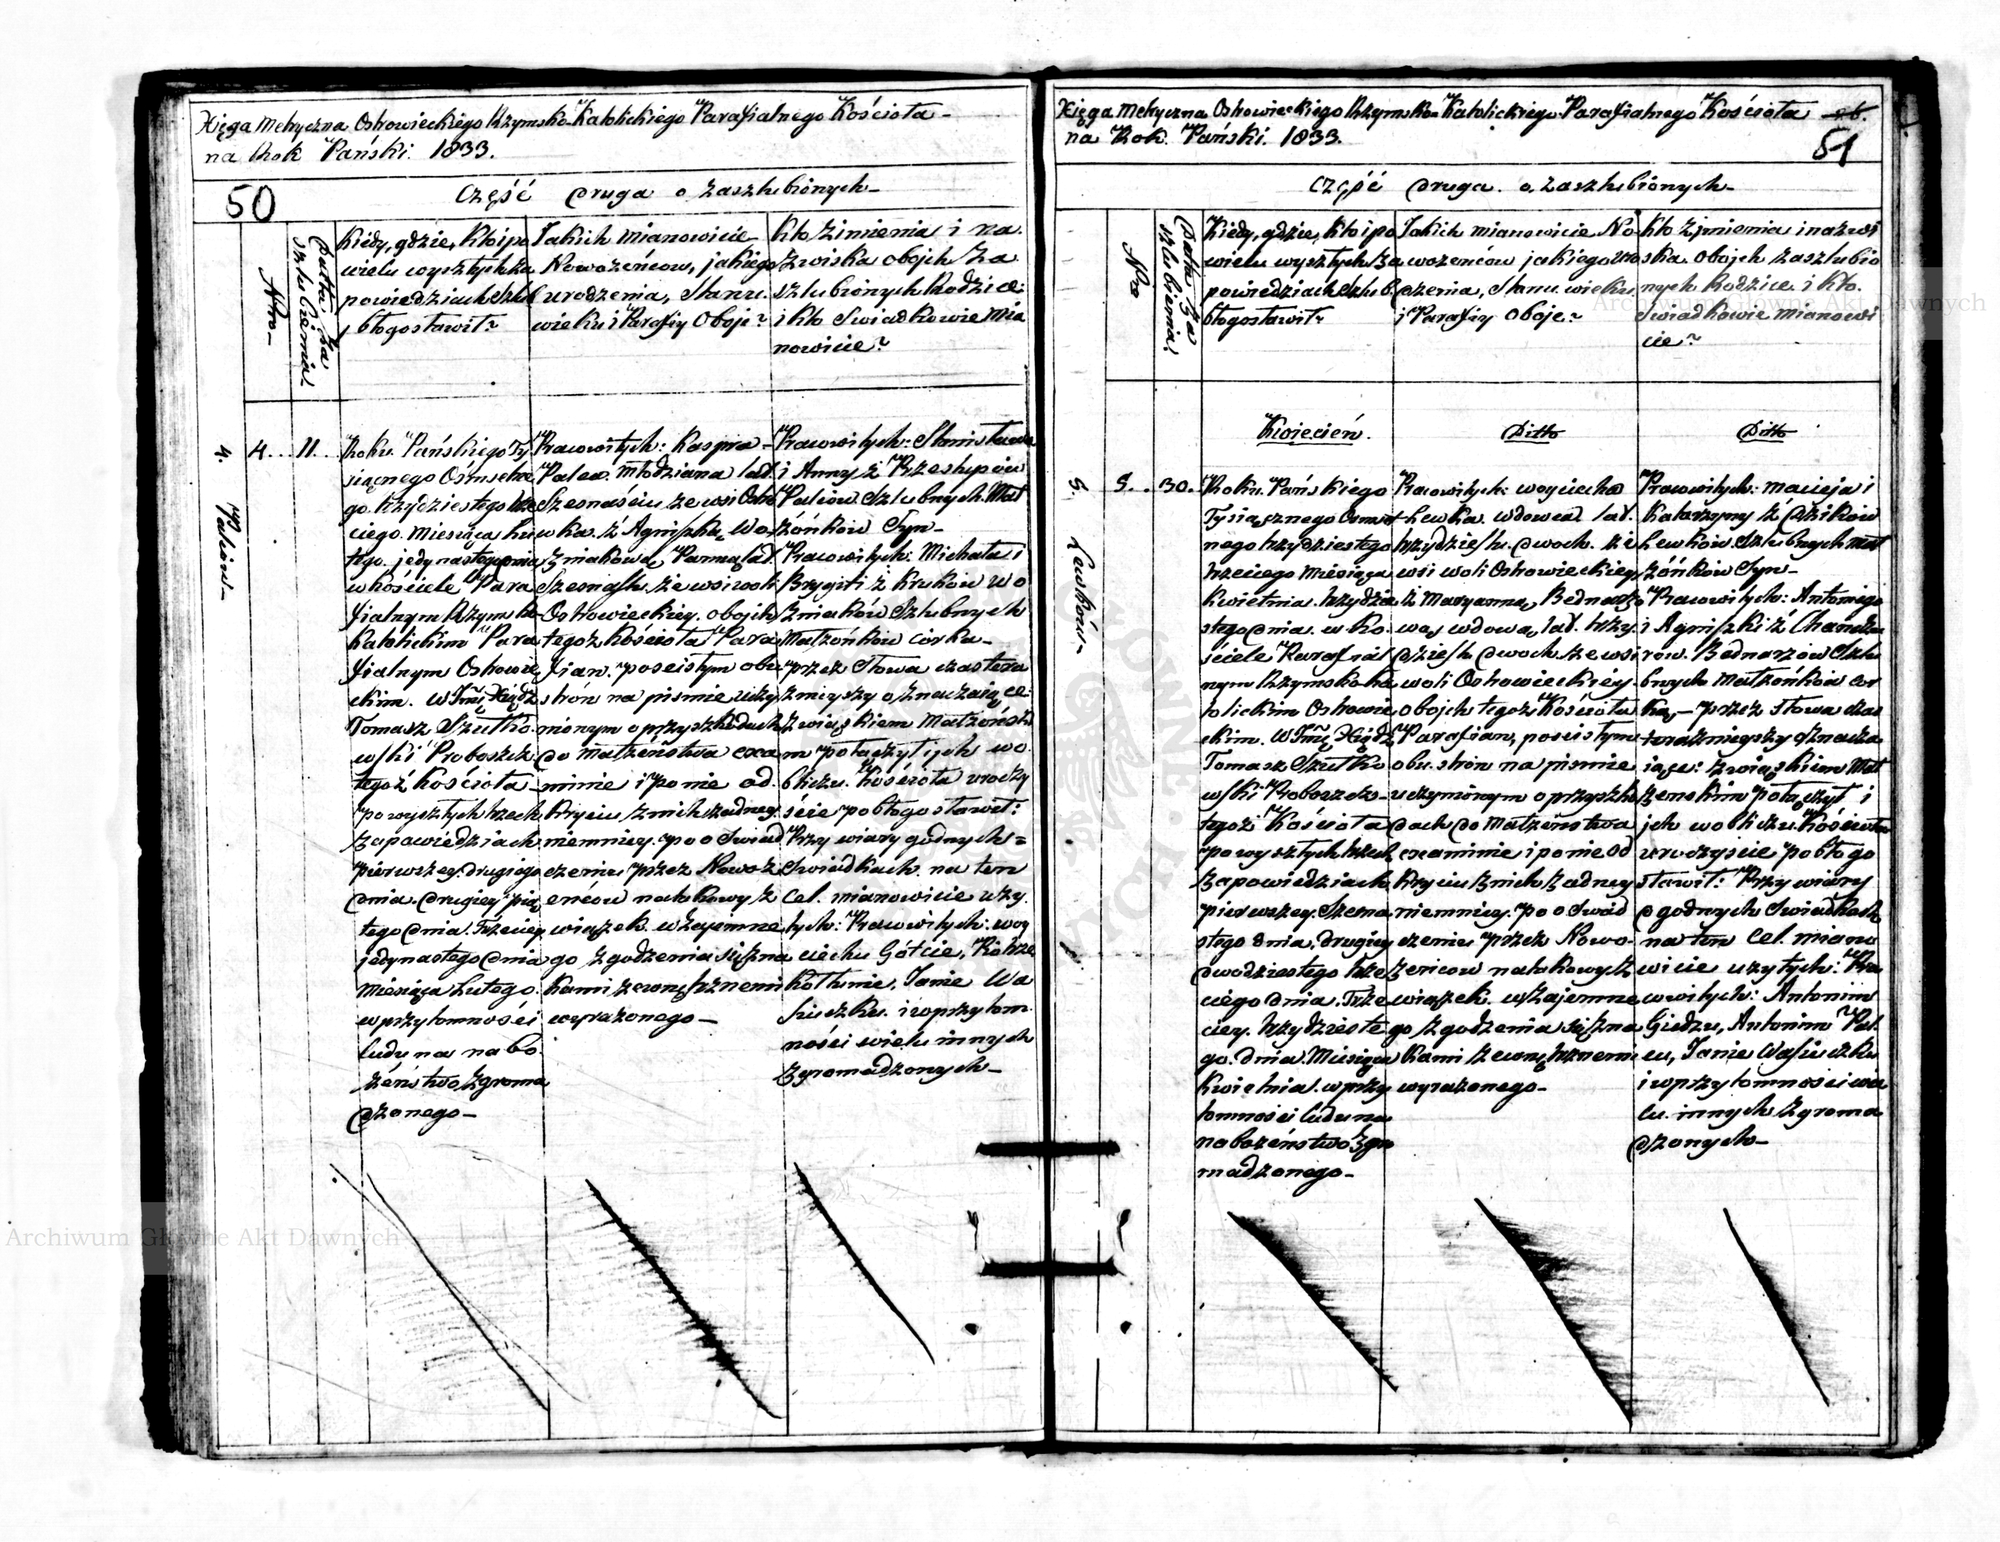 Xięga Metryczna Ostrowieckiego Rzymsko-Katolickiego Parafialnego Kościoła
na Rok Pański 1833.
50
Część Druga o Zaszlubionych
Nro
Datta Za
szlubienia
Kiedy, gdzie, kto i po
wielu wyszłych Za
powiedziach Szlub
błogosławił?
Jakich mianowicie
Nowożeńcow, jakiego
urodzenia, Stanu
wieku i Parafiy Oboje?
Kto z imienia i na
zwiska obojch Za
szlubionych Rodzice
i kto Swiadkowie Mia
nowicie?
4.
Palców
4.
11.
Roku Pańskiego Ty
siącnego Ośmsetne
go trzydziestego trze
ciego Miesiąca Lu
tego jedynastego dnia
w kościele Para
fialnym Rzymsko
Katolickim Para
fialnym Ostrowie
ckim. W Jmć Xiądz
Tomasz Szutko
wski Proboszcz
tegoż kościoła
po wyszłych trzech
Zapowiedziach
pierwszey drugiego
dnia drugiey pią
tego dnia Trzeciey
jedynastego dnia
Miesiąca Lutego
w przytomności
ludu na nabo
żeństwo zgroma
dzonego
Pracowitych: Kaspra
Palca Młodziana lat
Szesnaściu ze wsi Ostro
wka. z Agniszką Wo
zniakową Panną lat
Szesnastu ze wsi woli
Ostrowieckiey obojch
tegoż kościoła Para
fian. po ścisłym obu
stron na pismie uczy
nionym o przyszkodach
do Małżeństwa exa
minie i po nie od
kryciu z nich żadney
niemniey po oświad
czeniu przez Nowoż
eńcow natakowy z
wiązek wzajemne
go zgodzenia się zna
kami zewnętrznemi
wyrażonego
Pracowitych: Stanisława
i Anny z Przestępów
Palców Szlubnych Mał
żońków Syn
Pracowitych: Michała i
Brygiti z Kruków Wo
zniaków Szlubnych
Małżońków córku
przez Słowa czastera
zmieyszy oznaczaiące
Związkiem Małżeńsk
m połączył ijch wo
bliczu kościoła uroczy
ście pobłogosławił:
Przy wiary godnych
Swiadkach na ten
cel mianowicie uży
tych: Pracowitych: woy
ciechu Gółcie, Piotrze
Kołtunie, Janie Wa
siuszku i w przytom
ności wielu innych
zgromadzonych
Xięga Metryczna Ostrowieckiego Rzymsko-Katolickiego Parafialnego Kościoła
na Rok Pański 1833.
51
Część Druga o Zaszlubionych
Nro
Datta Za
szlubienia
Kiedy, gdzie, kto i po
wielu wyszłych Za
powiedziach Szlub
błogosławił?
Jakich mianowicie No
wożeńców jakiego uro
dzenia, Stanu wieku
i Parafiy Oboje?
Kto z jmienia i nazwi
ska obojch zaszlubio
nych Rodzice i kto
Swiadkowie mianowi
cie?
Kwiecień
Ditto
Ditto
5.
Lewków
5.
30.
Roku Pańskiego
Tysiącznego Osmset
nego trzydziestego
trzeciego Miesiąca
Kwietnia trzydzie
stego dnia w Ko
ściele Parafial
nym Rzymskoka
tolickim Ostrowie
ckim. W Jmć Xiądz
Tomasz Szutko
wski Proboszcz
tegoż Kościoła
po wyszłych trzech
Zapowiedziach
pierwszey Szesna
stego dnia, drugiey
dwudziestego trze
ciego dnia Trze
ciey trzydzieste
go dnia Miesiąca
Kwietnia w przy
tomności ludu na
nabożeństwo zgro
madzonego
Pracowitych: Woyciecha
Lewka wdowca lat
trzydziestu dwoch ze
wsi woli Ostrowieckiey
z Maryanną Bednarzo
wą wdową lat trzy
dziestu dwoch ze wsi
woli Ostrowieckiey
obojch tegoż Kościoła
Parafian, po ścisłym
obu stron na pismie
uczynionym o przyszko
dach do Małżeństwa
examinie i po nie od
kryciu z nich żadney
niemniey po oświad
czeniu przez Nowo
żeńcow natakowy z
wiązek wzajemne
go zgodzenia się zna
kami zewnętrznemi
wyrażonego
Pracowitych: Macieja i
Katarzyny z Dzików
Lewków Szlubnych Mał
żońków Syn
Pracowitych: Antoniego
i Agniszki z
Bednarzów Szlu
bnych Małżońków cor
ka, przez słowa czas
teraznieyszy oznacza
iące: związkiem Mał
żeńskim połączył i
jch wobliczu Kościoła
uroczyscie pobłogo
sławił: Przy wiary
godnych Swiadkach
na ten cel miano
wicie użytych: Pra
cowitych: Antonim
Giedzu, Antonim Pal
cu, Janie Wasiuszku
i w przytomności wie
lu innych zgroma
dzonych
Archiwum Główne Akt Dawnych
Archiwum Główne Akt Dawnych